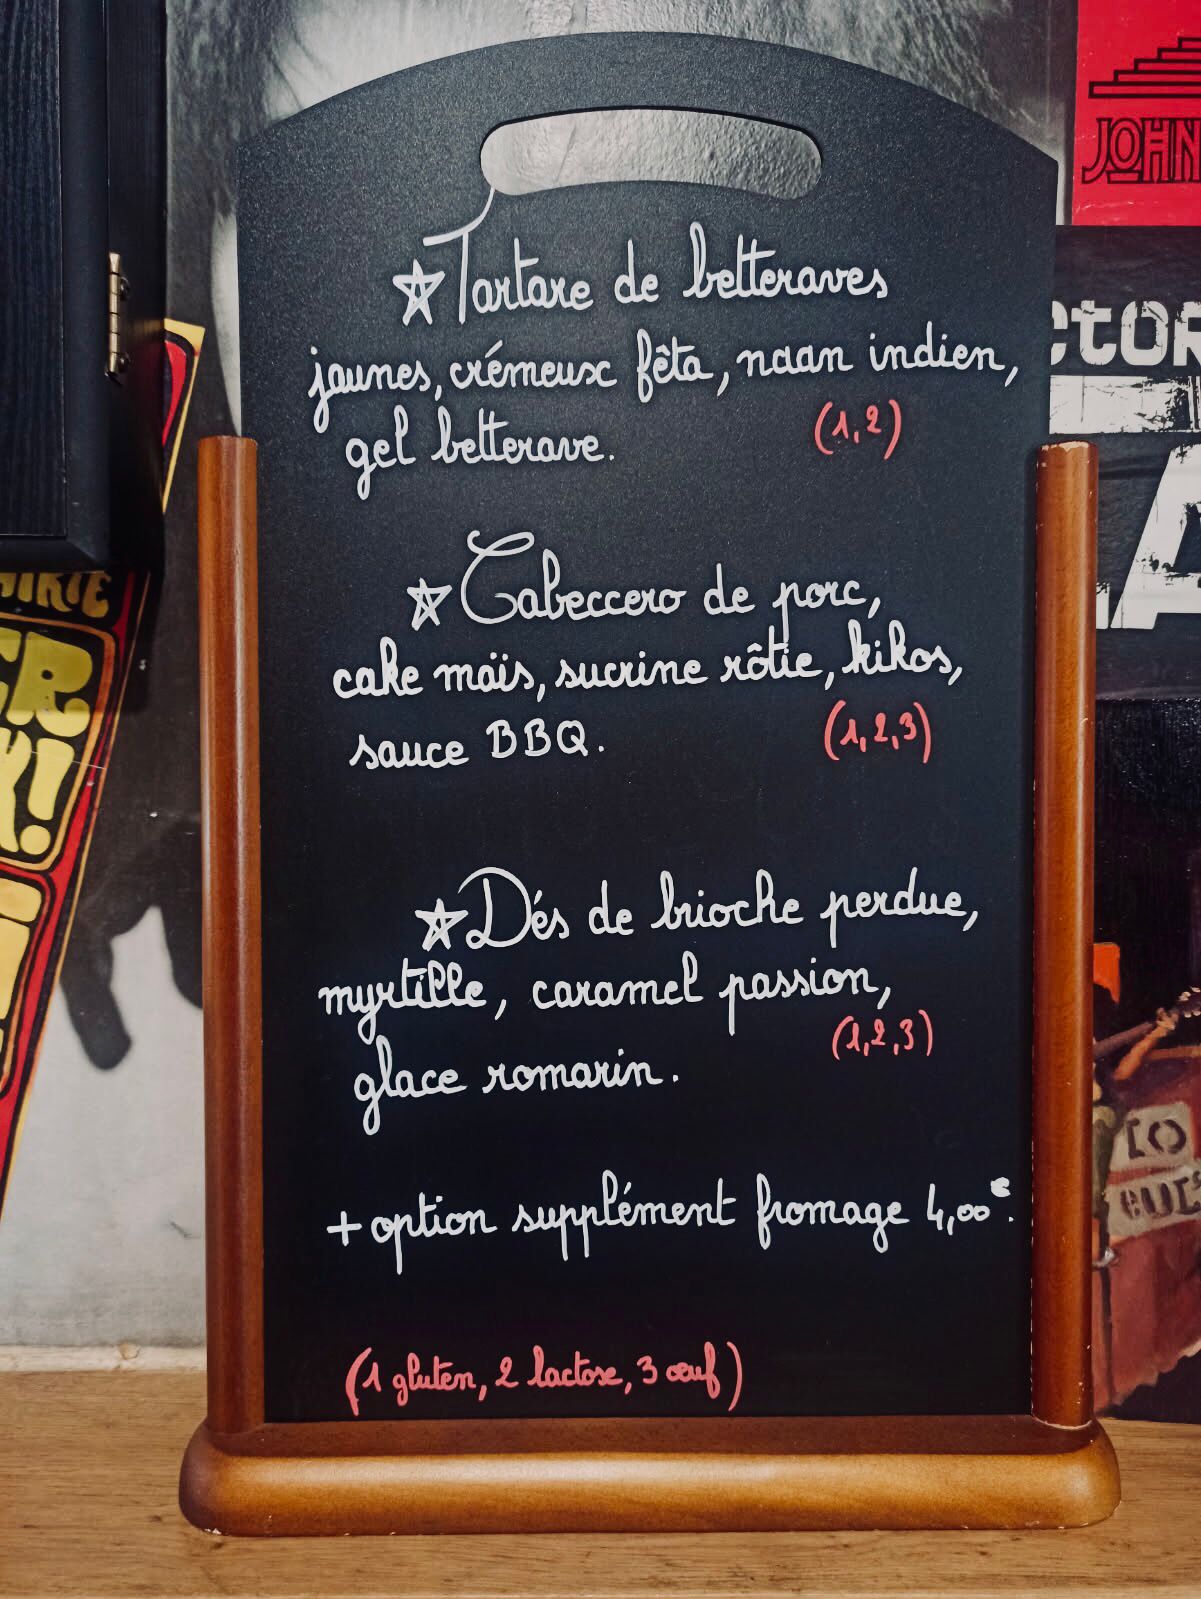 ☆Tartare de betteraves
jaunes, crémeux fêta, naan indien,
gel betterave. (1,2)
☆Cabeccero de porc,
cake maïs, sucrine rôtie, kikos,
sauce BBQ. (1,2,3)
☆Dés de brioche perdue,
myrtille, caramel passion,
glace romarin. (1,2,3)
+ option supplément fromage 4,00€.
(1 gluten, 2 lactose, 3 œuf)
JOHN